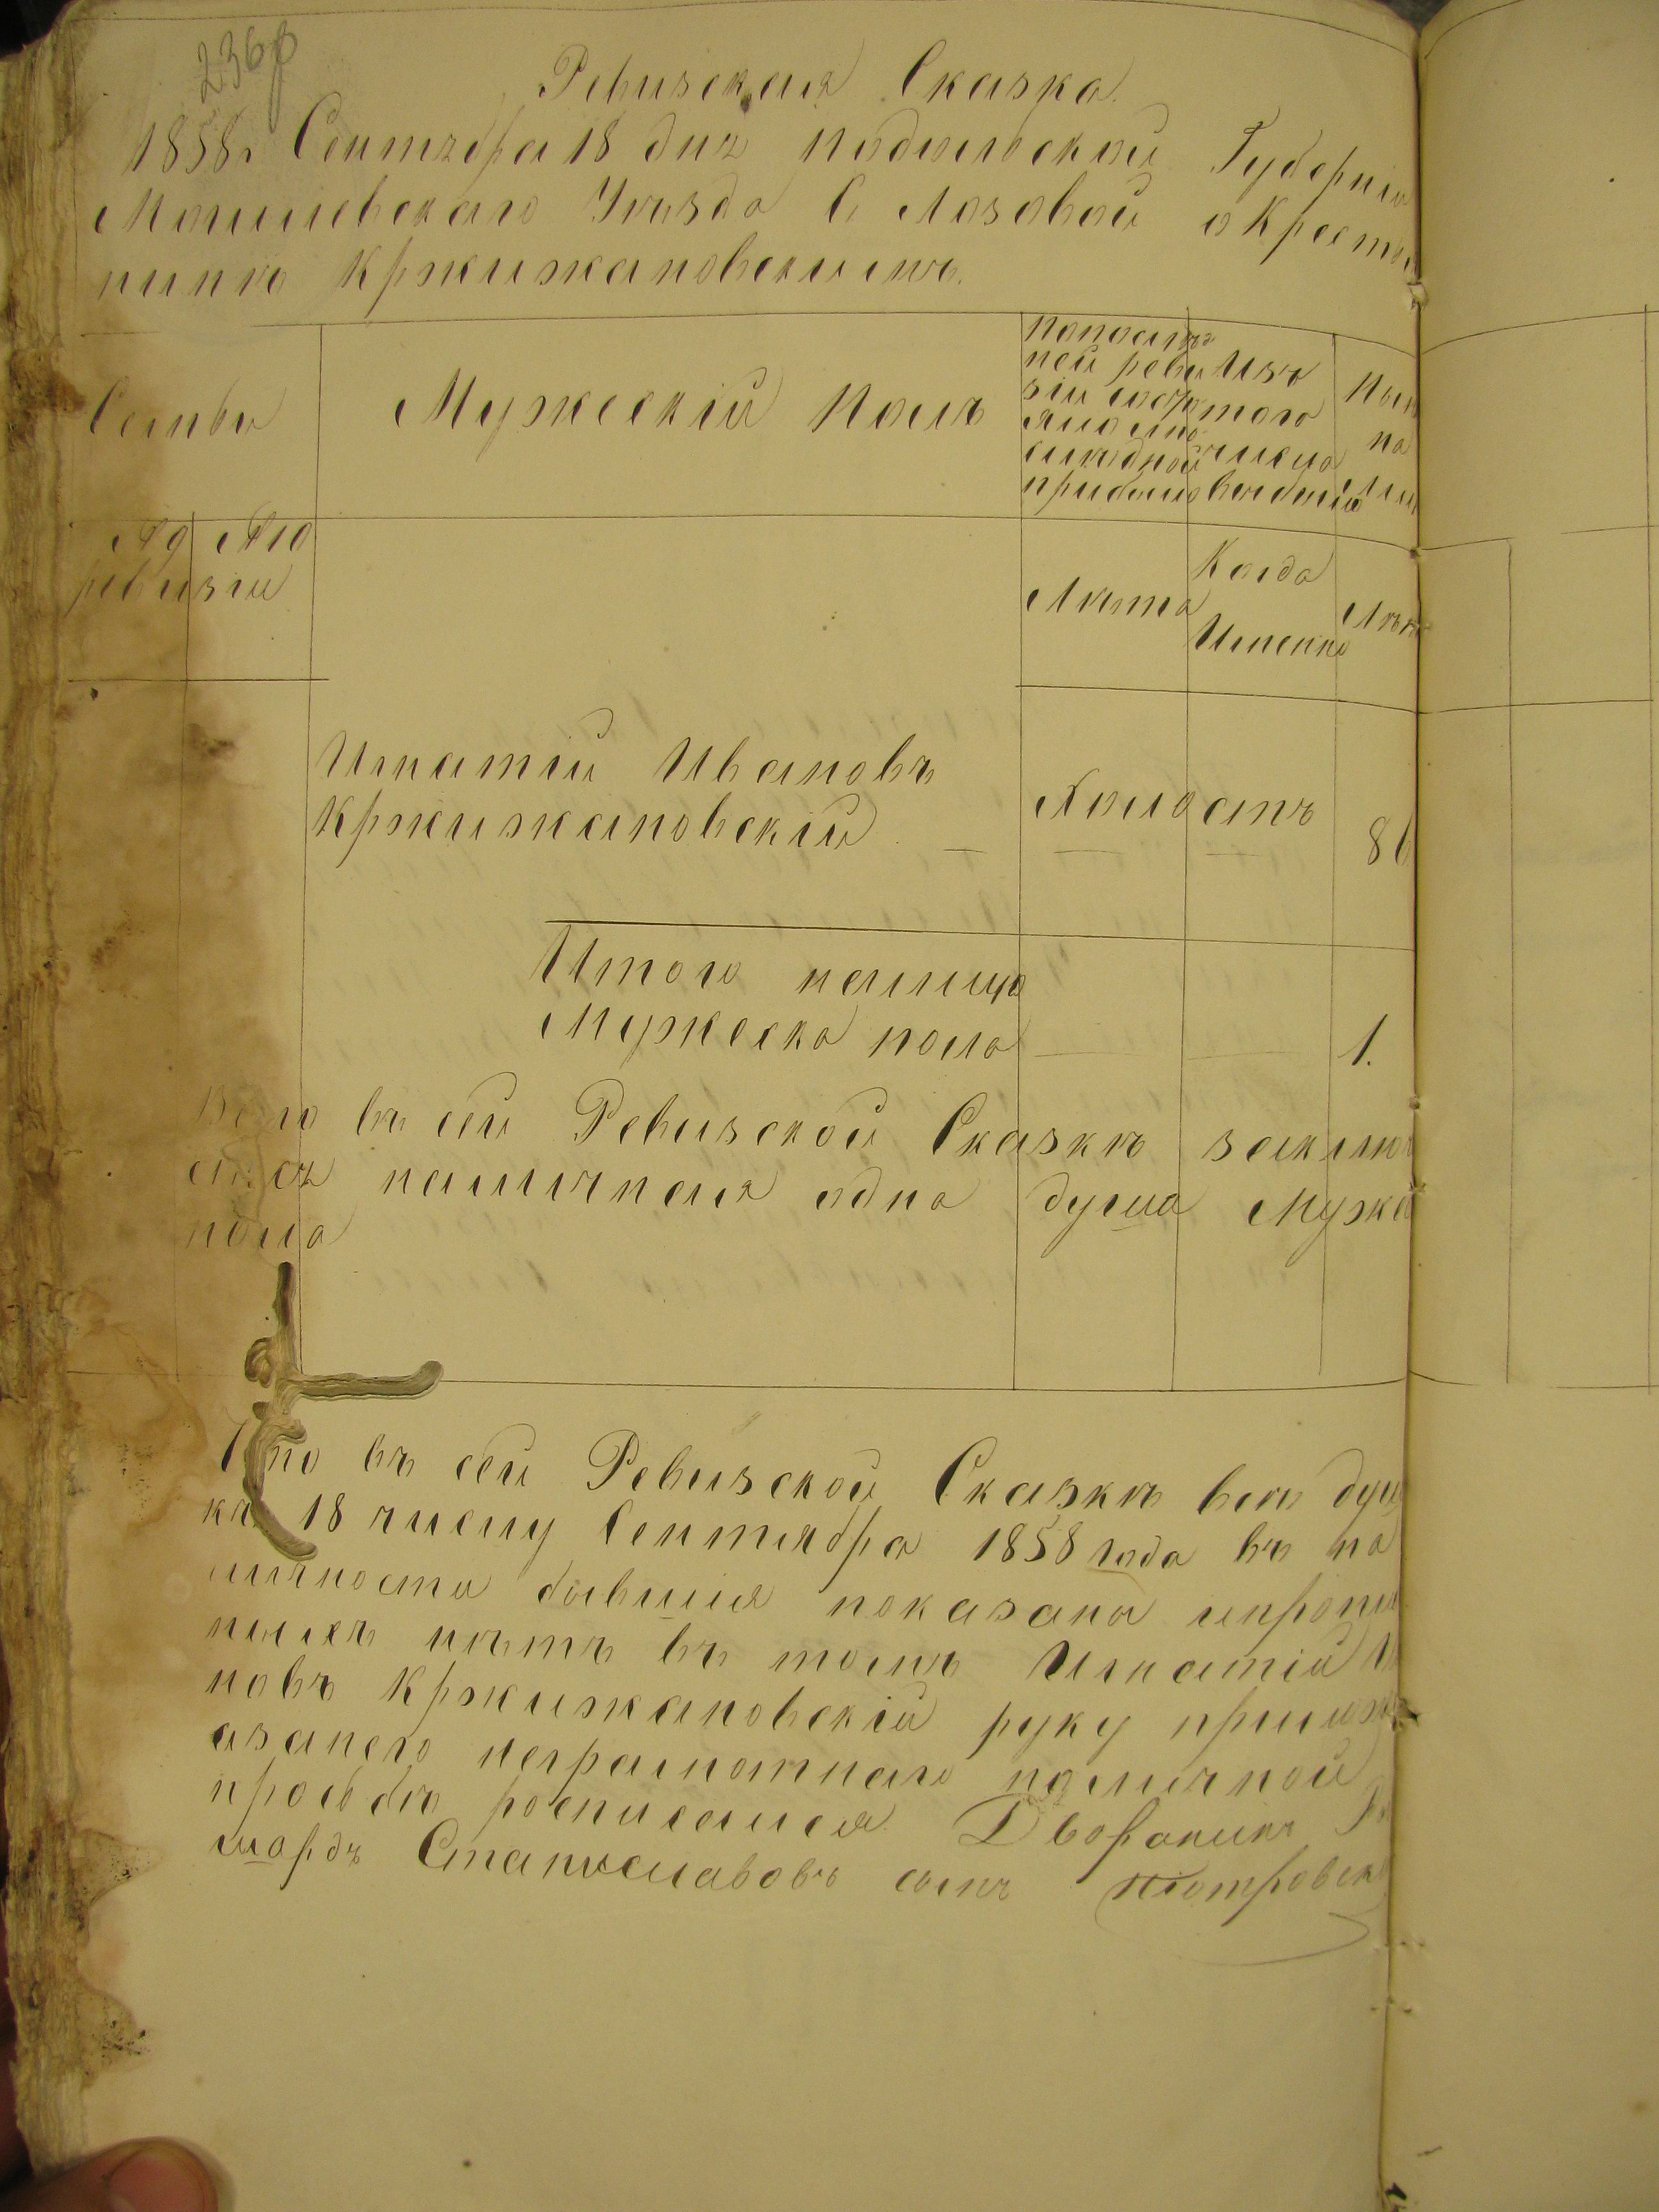 236
Ревизская Сказка.
1858. Сентября 18 дня Подольской Губерніи
Могилевскаго Уѣзда С. Лозовой о Крестья
нинѣ Кржижановскимъ.
Семьи
Мужескій Полъ
По послѣд
ней реви
зіи состо
яло и по
слѣ дной
прибыло
Изъ
того
числа
выбыло
Ны
на
ли
По ревизіи
Лѣта
Когда
Именно
Лѣт
Игнатій Ивановъ
Кржижановскій
Холостъ
Итого налицо
Мужеска пола 1.
Всего въ сей Ревизской Сказкѣ заключ
ается наличная одна душа Мужес
пола
Что въ сей Ревизской Сказкѣ всѣ душ
къ 18 числу Сентября 1858 года въ на
личности бывшія показаны и пропи
ныхъ нѣтъ въ томъ Игнатій И
новъ Кржижановскій руку прилож
а за него неграмотнаго по личной
просьбѣ росписался Дворянинъ
Станиславовъ сынъ Піотровск